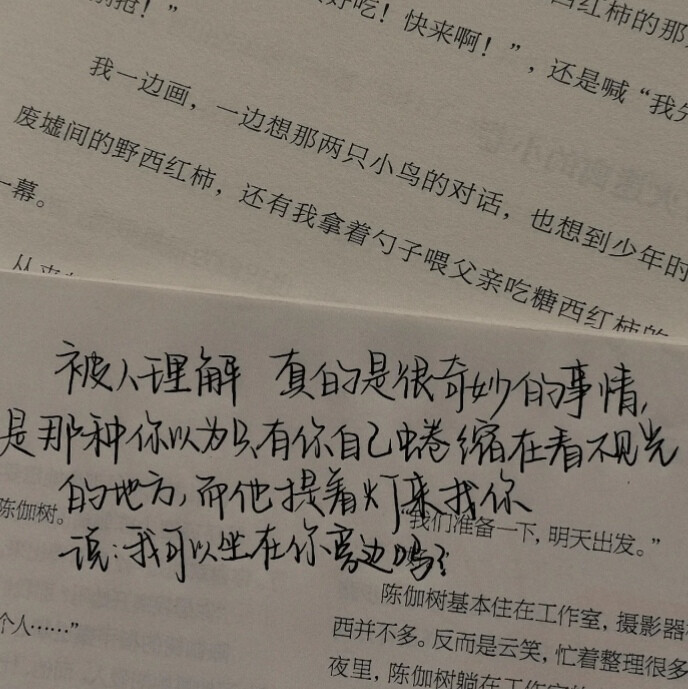 好吃！快来啊！”，还是喊“我
西红柿的那
抢！”
我一边画，一边想那两只小鸟的对话，也想到少年时
废墟间的野西红柿，还有我拿着勺子喂父亲吃糖西红柿的
一幕。
被人理解 真的是很奇妙的事情，
是那种你以为只有你自己蜷缩在看不见光
的地方，而他提着灯来找你
说：我可以坐在你旁边吗？
陈伽树。
我们准备一下，明天出发。”
个人……”
陈伽树基本住在工作室，摄影器
西并不多。反而是云笑，忙着整理很多
夜里，陈伽树躺在工作室的